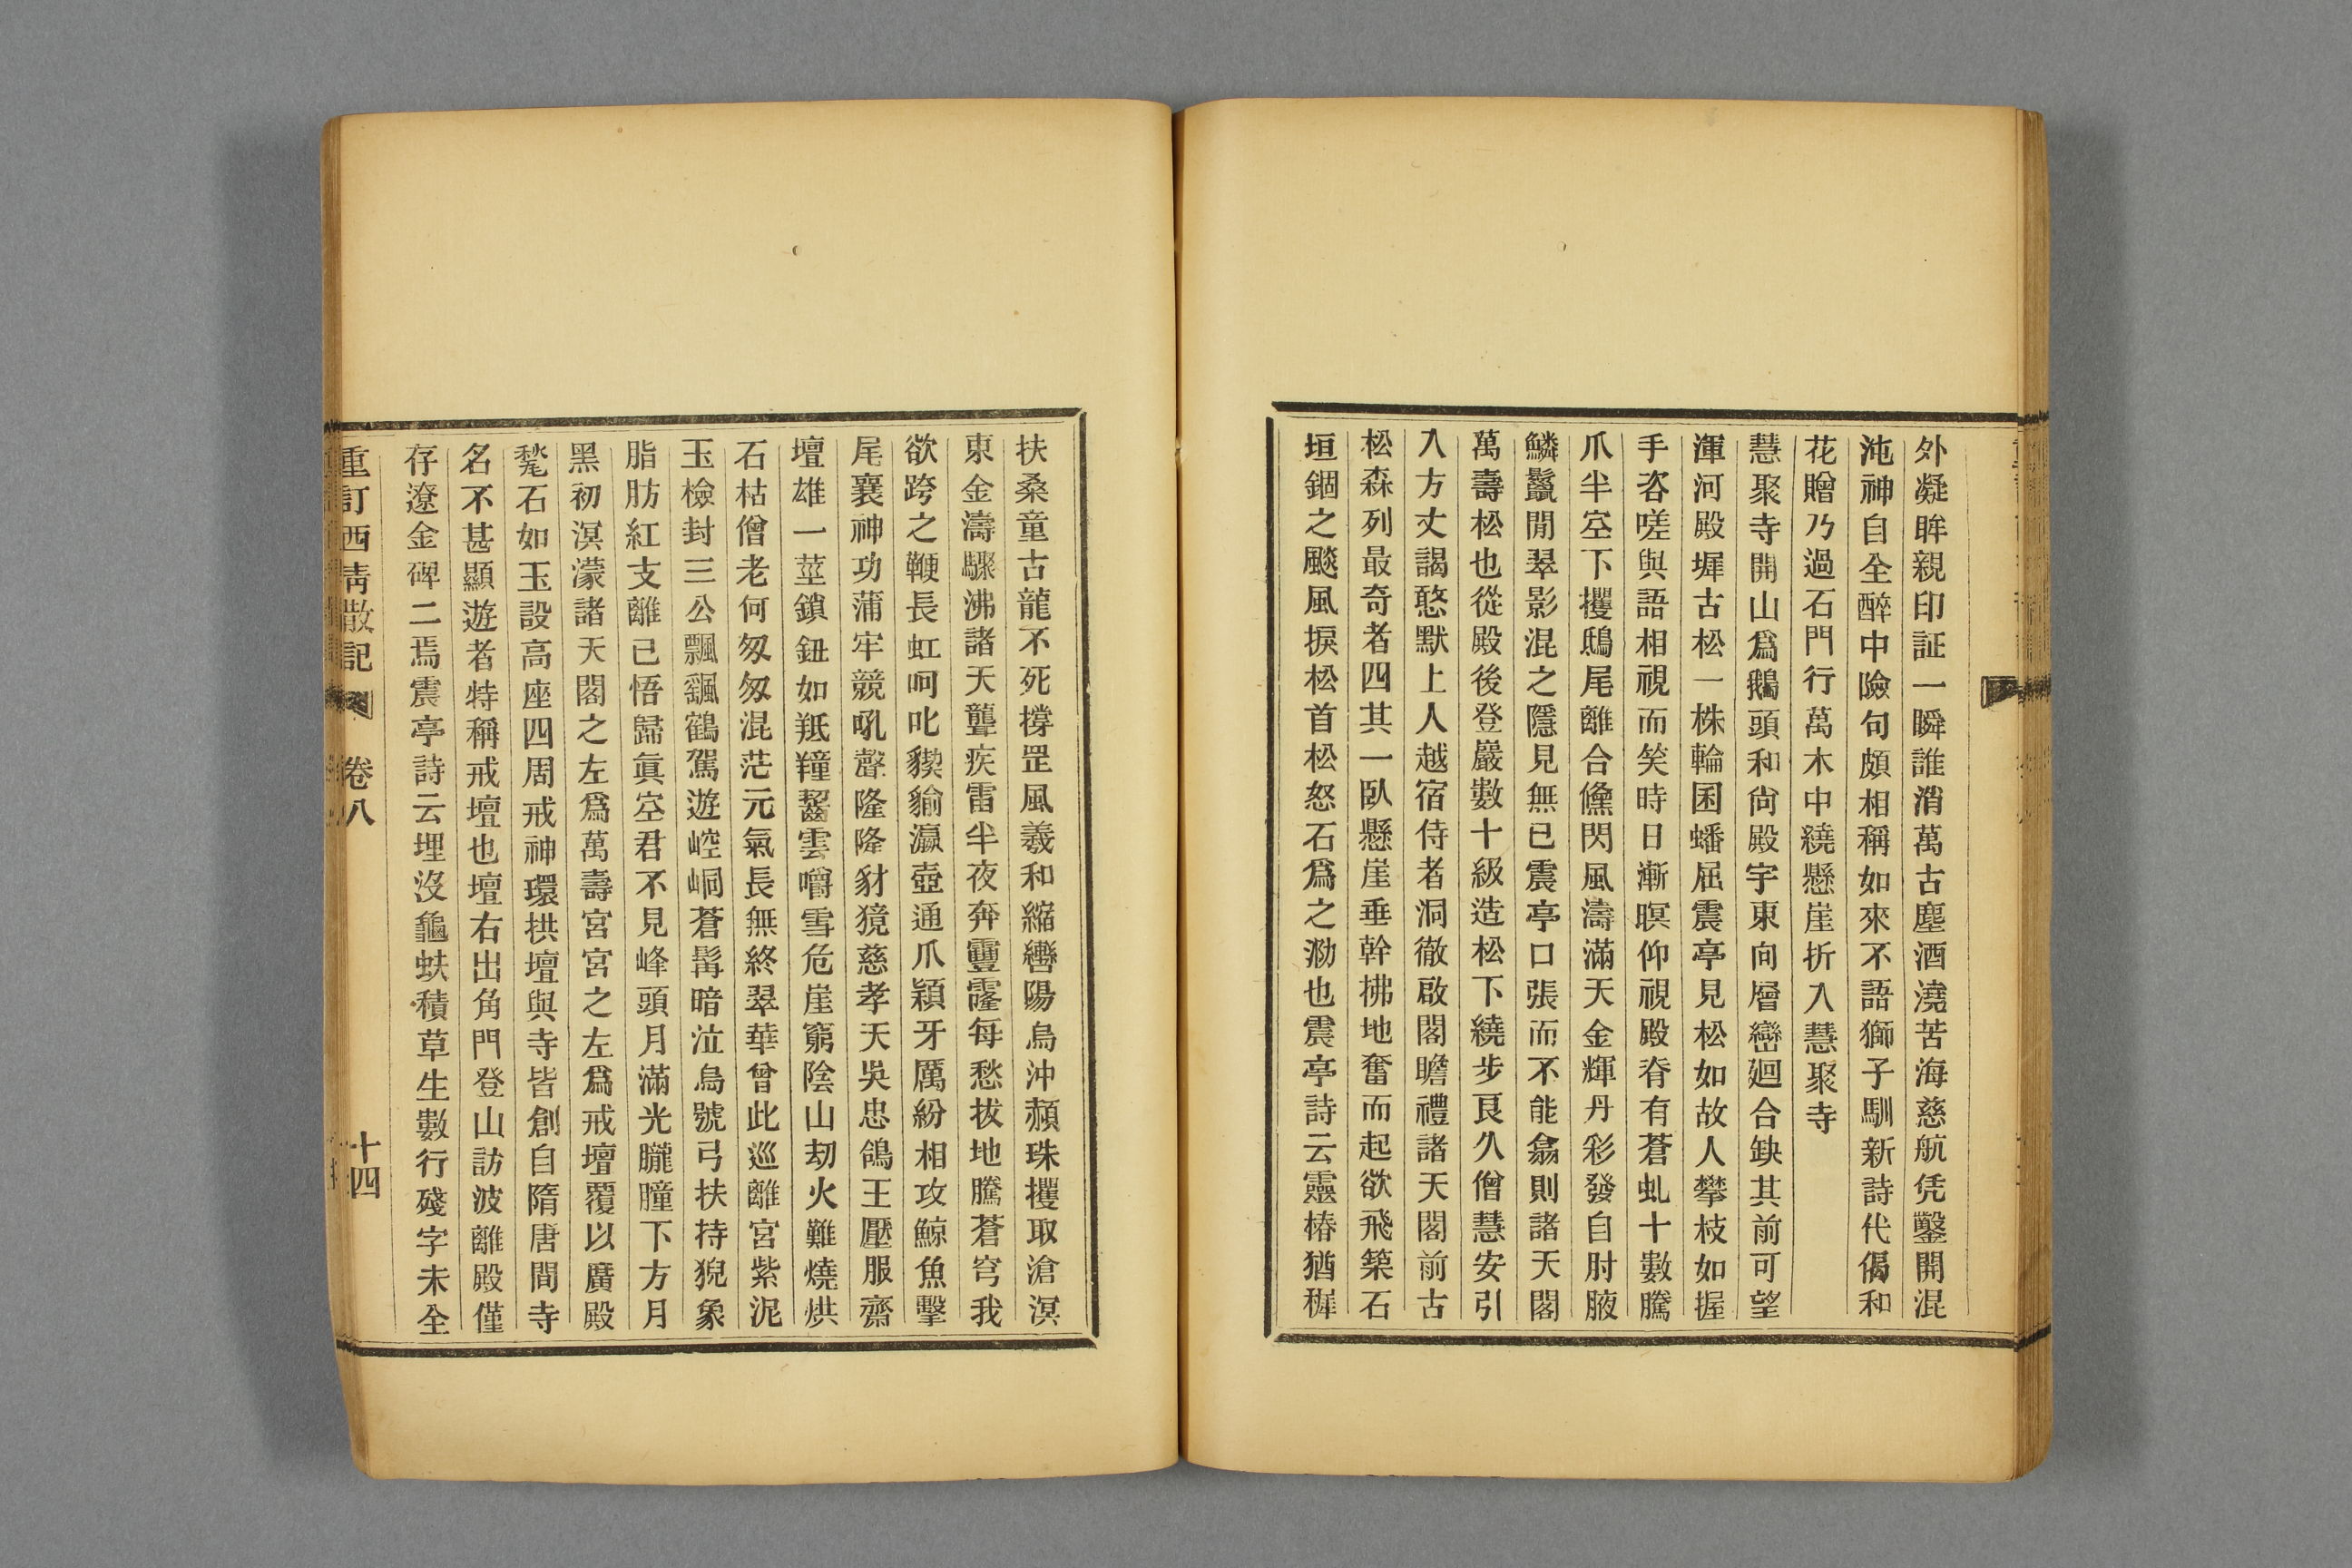 外凝眸親印証一瞬誰消萬古塵酒澆苦海慈航凭鑿開混
沌神自全醉中險句頗相稱如來不語獅子馴新詩代偈和
花贈乃過石門行萬木中繞懸崖折入慧聚寺
慧聚寺開山爲鵝頭和尙殿宇東向層巒廻合缺其前可望
渾河殿墀古松一株輪囷蟠屈震亭見松如故人攀枝如握
手咨嗟與語相視而笑時日漸暝仰視殿脊有蒼虬十數騰
爪半空下攫鴟尾離合儵閃風濤滿天金輝丹彩發自肘腋
鱗鬣閒翠影混之隱見無已震亭口張而不能翕則諸天閣
萬壽松也從殿後登巖數十級造松下繞步艮久僧慧安引
入方丈謁憨默上人越宿侍者洞徹啟閣瞻禮諸天閣前古
松森列最奇者四其一臥懸崖垂幹拂地奮而起欲飛築石
垣錮之颷風捩松首松怒石爲之泐也震亭詩云靈椿猶穉
扶桑童古龍不死撐罡風羲和縮轡陽烏沖赬珠攫取滄溟
東金濤驟沸諸天聾疾雷半夜奔靊靇每愁拔地騰蒼穹我
欲跨之鞭長虹呵叱貜貐瀛壺通爪潁牙厲紛相攻鯨魚擊
尾襄神功蒲牢競吼聲隆隆豺獍慈孝天吳忠鴿王壓服齋
壇雄一莖鎖鈕如羝羶齧雲嚼雪危崖窮陰山刧火難燒烘
石枯僧老何匆匆混茫元氣長無終翠華曾此巡離宮紫泥
玉檢封三公飄颻鶴駕遊崆峒蒼髯暗泣烏號弓扶持猊象
脂肪紅支離已悟歸眞空君不見峰頭月滿光朧朣下方月
黑初溟濛諸天閣之左爲萬壽宮宮之左爲戒壇覆以廣殿
甃石如玉設高座四周戒神環拱壇與寺皆創自隋唐間寺
名不甚顯遊者特稱戒壇也壇右出角門登山訪波離殿僅
存遼金碑二焉震亭詩云埋沒龜蚨積草生數行殘字未全
重訂西靑散記 卷八 十四